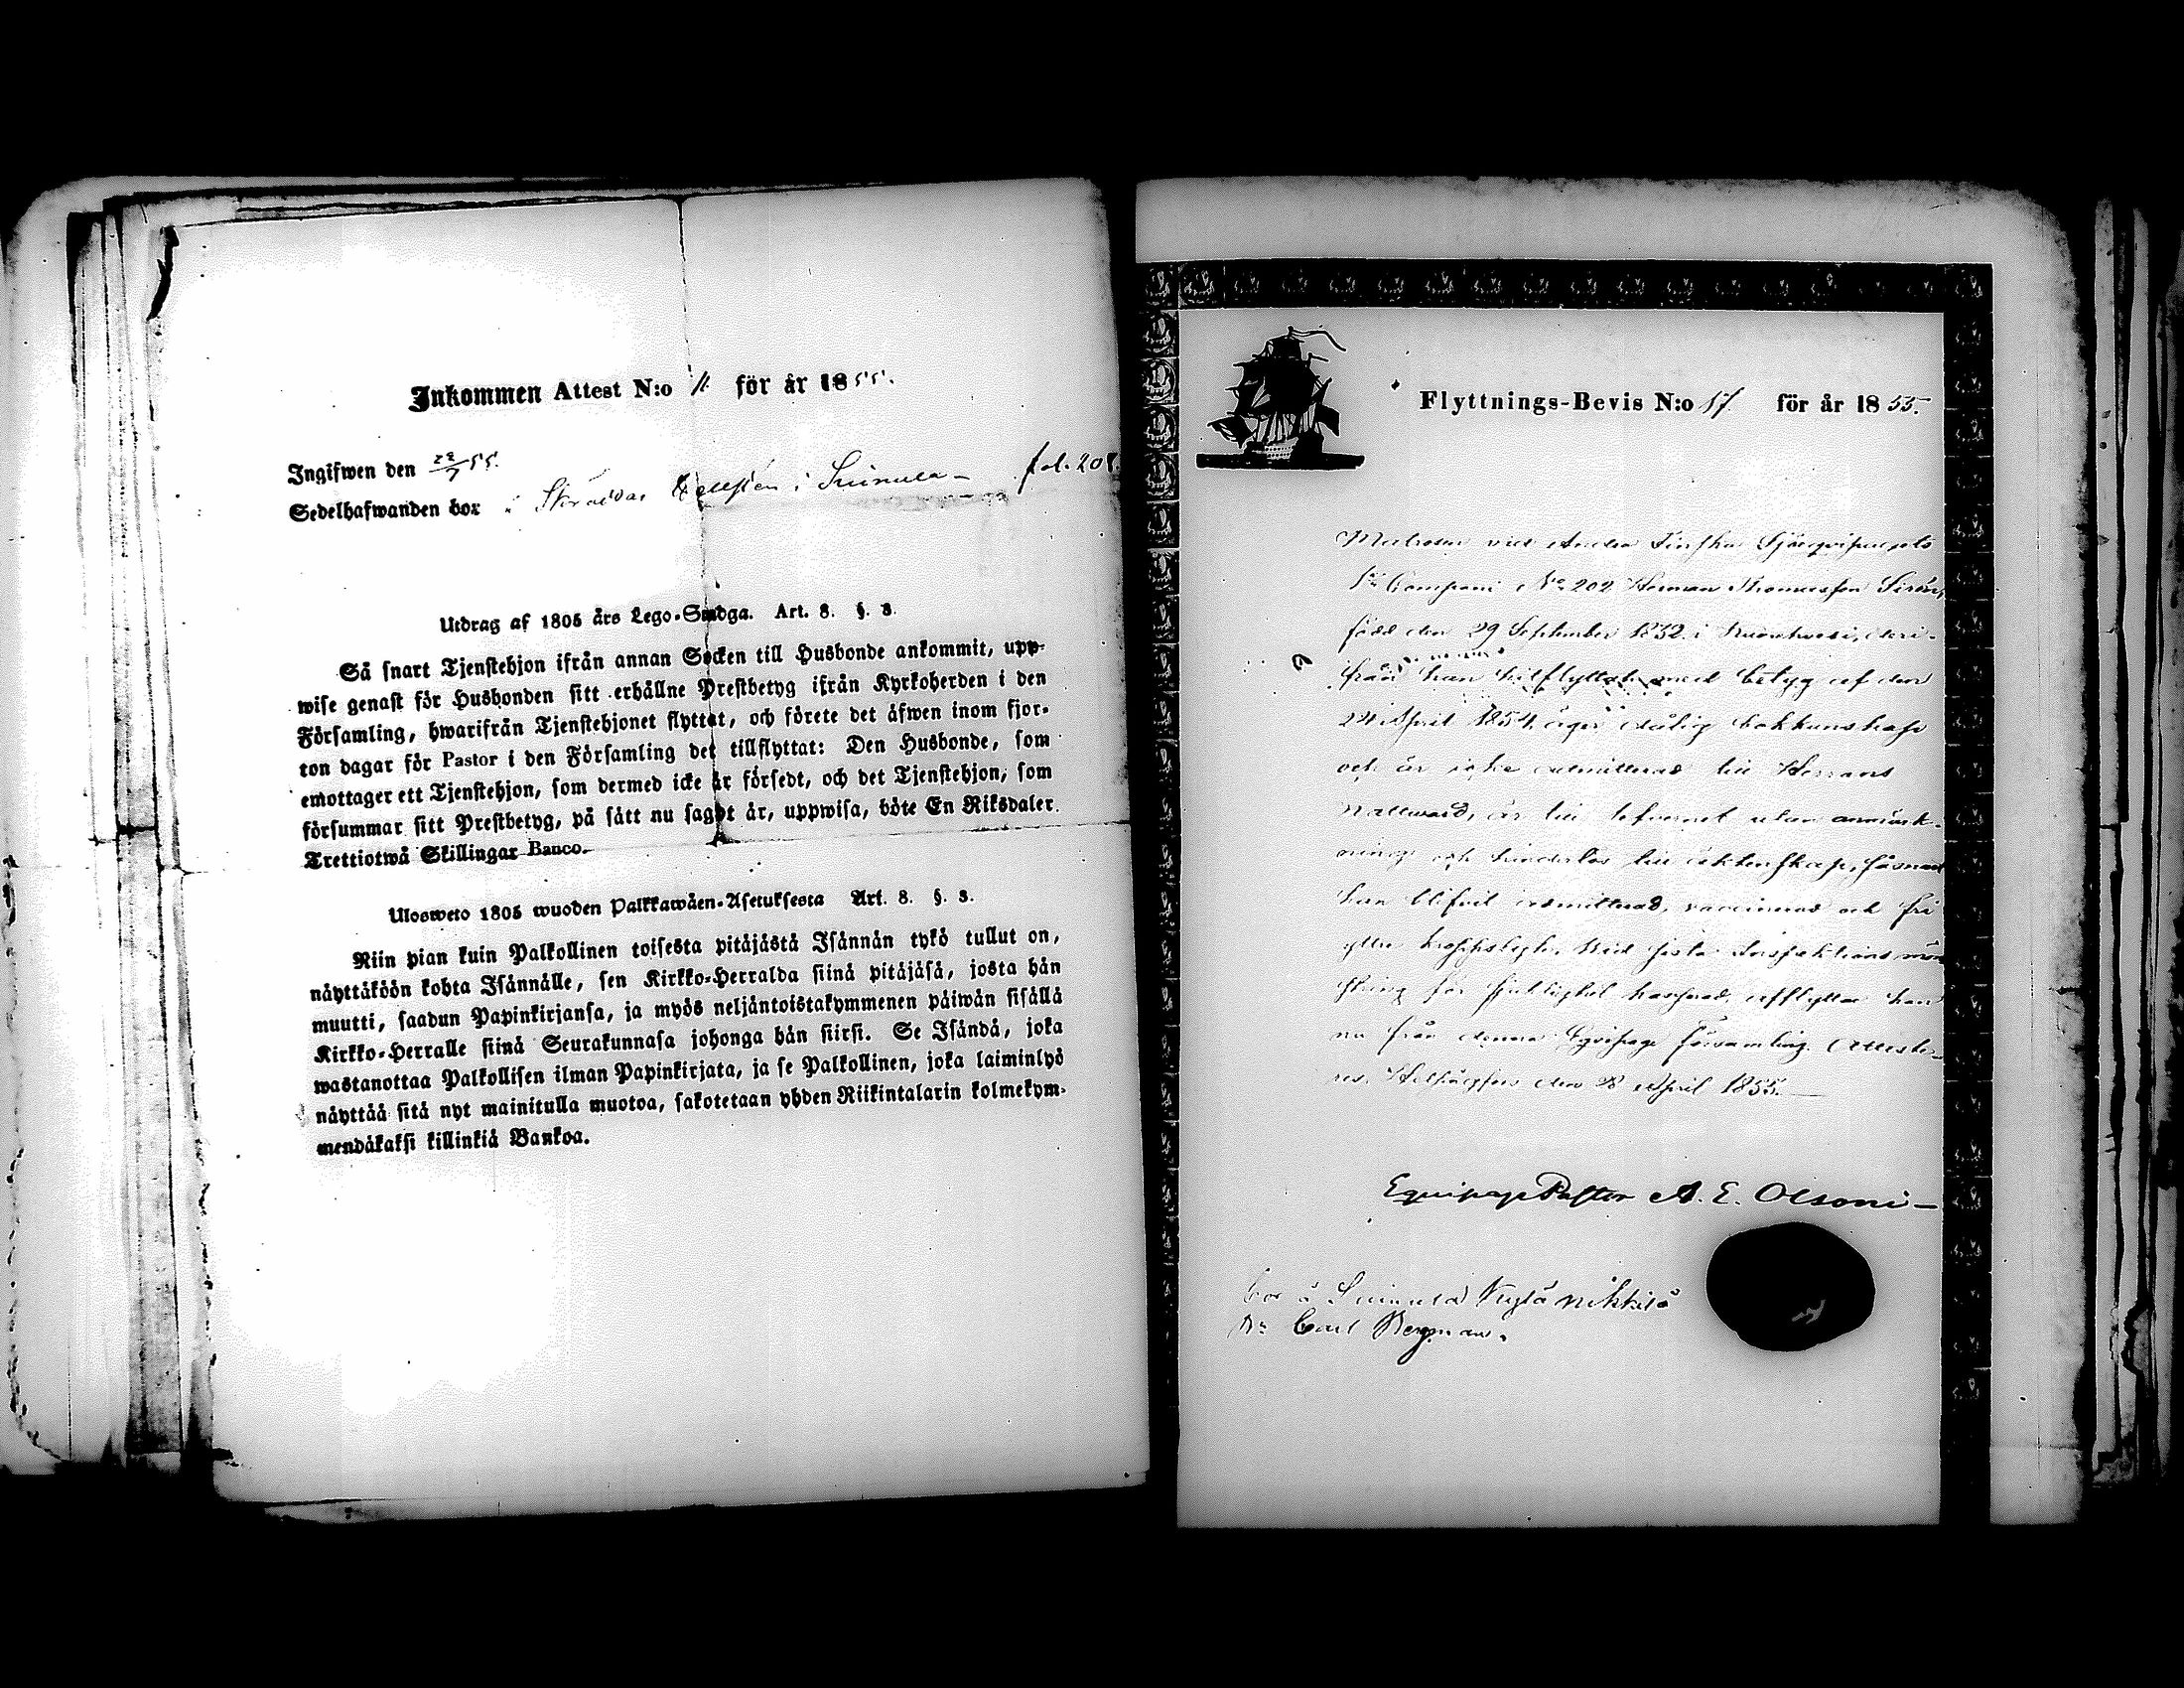 Inkommen Attest N:o 11. för år 1855.
Ingifwen den 22/7 55.
Sedelhafwanden bor i Skräddar i Suinula – fol. 208.
Utdrag af 1805 års Lego-Stadga. Art. 8. §. 3.
Så snart Tjenstehjon ifrån annan Socken till Husbonde ankommit, upp-
wise genast för Husbonden sitt erhållne Prestbetyg ifrån Kyrkoherden i den
Församling, hwarifrån Tjenstehjonet flyttat, och förete det äfwen inom fjor-
ton dagar för Pastor i den Församling det tillflyttat: Den Husbonde, som
emottager ett Tjenstehjon, som dermed icke är försedt, och det Tjenstehjon, som
försummar sitt Prestbetyg, på sätt nu sagdt är, uppwisa, böte En Riksdaler
Trettiotwå Skillingar Banco.
Ulosweto 1805 wuoden Palkkawäen-Asetuksesta Art. 8. §. 3.
Niin pian kuin Palkollinen toisesta pitäjästä Isännän tykö tullut on,
näyttäköön kohta Isännälle, sen Kirkko-Herralda siinä pitäjäsä, josta hän
muutti, saadun Papinkirjansa, ja myös neljäntoistakymmenen päiwän sisällä
Kirkko-Herralle siinä Seurakunnasa johonga hän siirsi. Se Isändä, joka
wastanottaa Palkollisen ilman Papinkirjata, ja se Palkollinen, joka laiminlyö
näyttää sitä nyt mainitulla muotoa, sakotetaan yhden Riikintalarin kolmekym-
mendäkaksi killinkiä Bankoa.
Flyttnings-Bevis N:o 17. för år 1855.
Matrosen vid Andra Finska Sjöequipagets
1sta Compani No 202 Herman Thomasson Sirén,
född den 29 September 1832 i Kuorehvesi, deri-
från han hitflyttat med betyg af den
24 April 1854, äger dålig bokkunskap
och är icke admitterad till Herrans
Nattvard, är till lefvernet utan anmärk-
ning och hinderlös till äktenskap, såsnart
han blifvit admitterad, vaccinerad och fri
yttre kropslyte. Vid sista Inspektions mön-
string för sjuklighet kasserad, afflyttar han
nu från denna Eqvipage församling. Atteste-
ras. Helsingfors den 28 April 1855.
Equipage Pastor A. E. Olsoni
bor i Suinula Yrjölä Nikkilä
Carl Bergman.